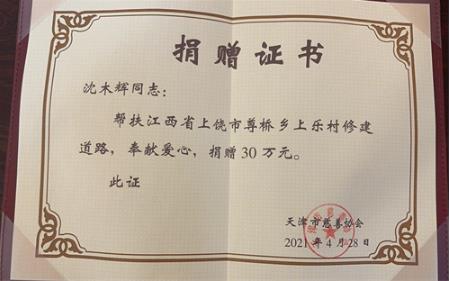 捐赠证书
沈木辉同志：
帮扶江西省上饶市尊桥乡上乐村修建
道路，奉献爱心，捐赠30万元。
此证
天津市慈善协会
2021年4月28日